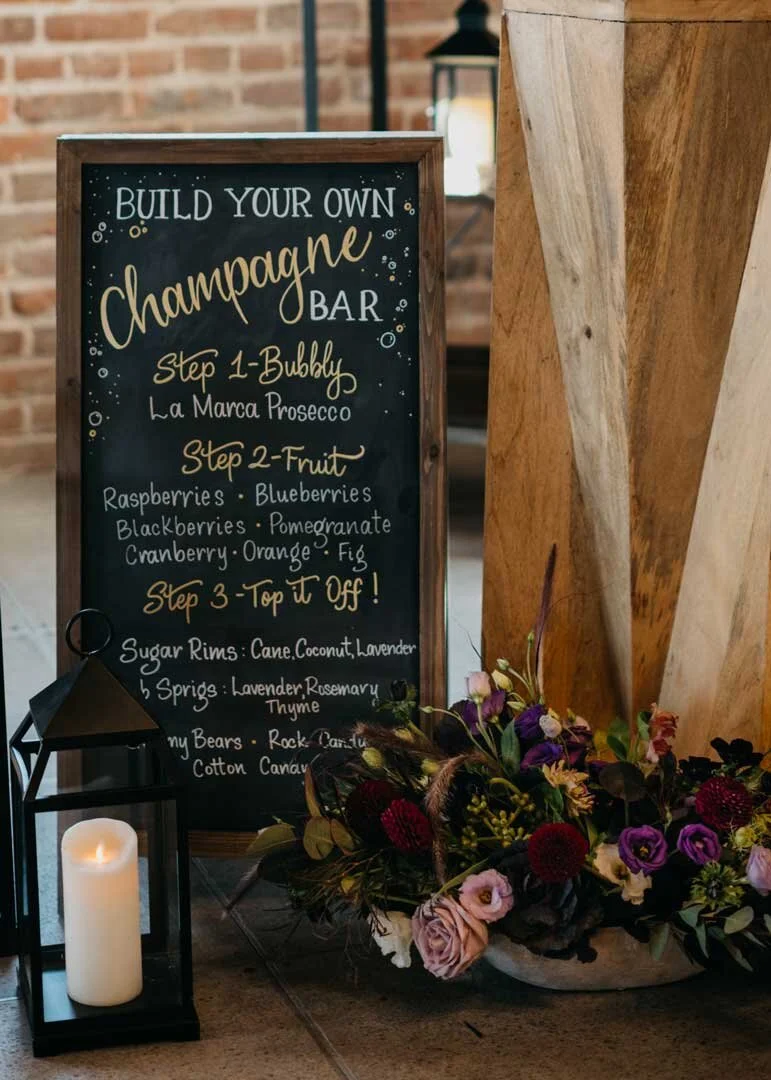 BUILD YOUR OWN
Champagne
BAR
Step 1-Bubbly
La Marca Prosecco
Step 2-Fruit
Raspberries · Blueberries
Blackberries · Pomegranate
Cranberry · Orange · Fig
Step 3-Top it Off!
Sugar Rims: Cane, Coconut, Lavender
b Sprigs: Lavender, Rosemary
Thyme
my Bears · Rock Candy
Cotton Candy